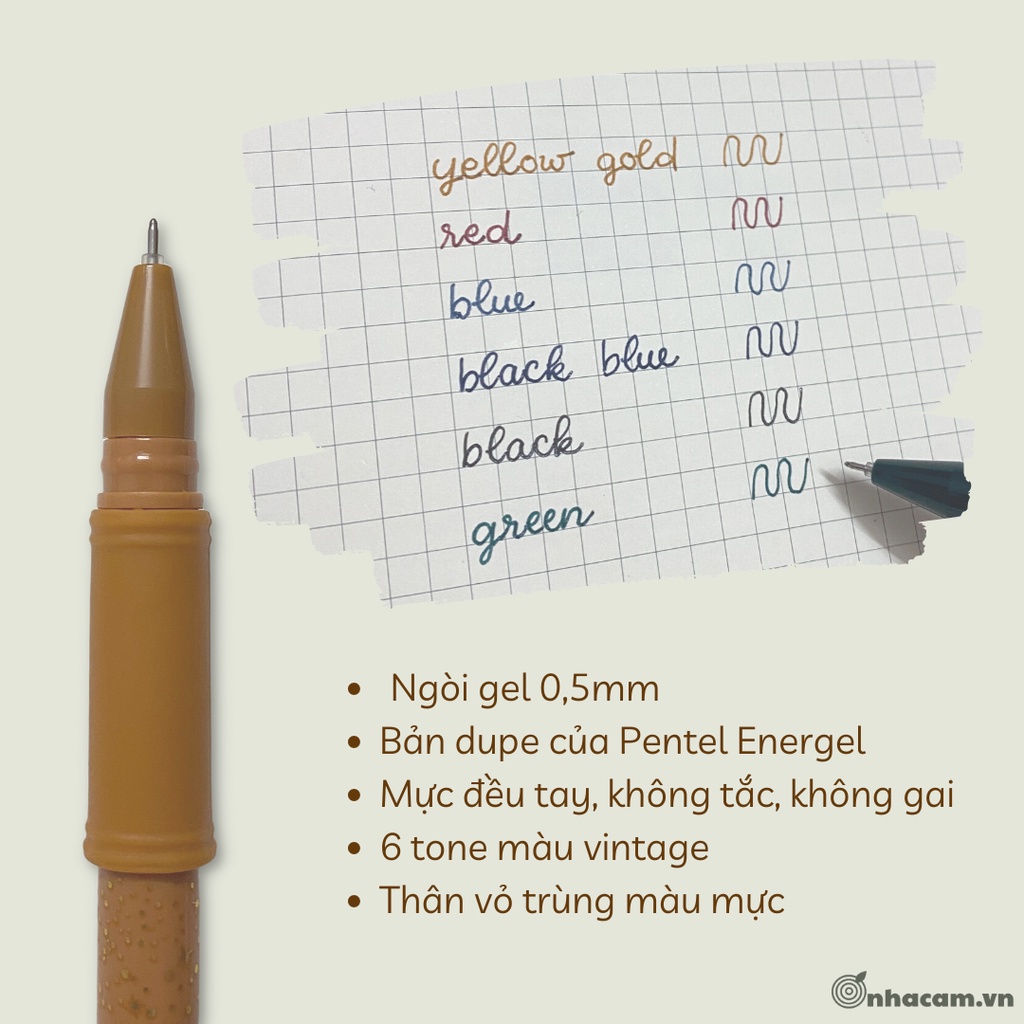 yellow gold
red
blue
black blue
black
green
• Ngòi gel 0,5mm
• Bản dupe của Pentel Energel
• Mực đều tay, không tắc, không gai
• 6 tone màu vintage
• Thân vỏ trùng màu mực
nhacam.vn